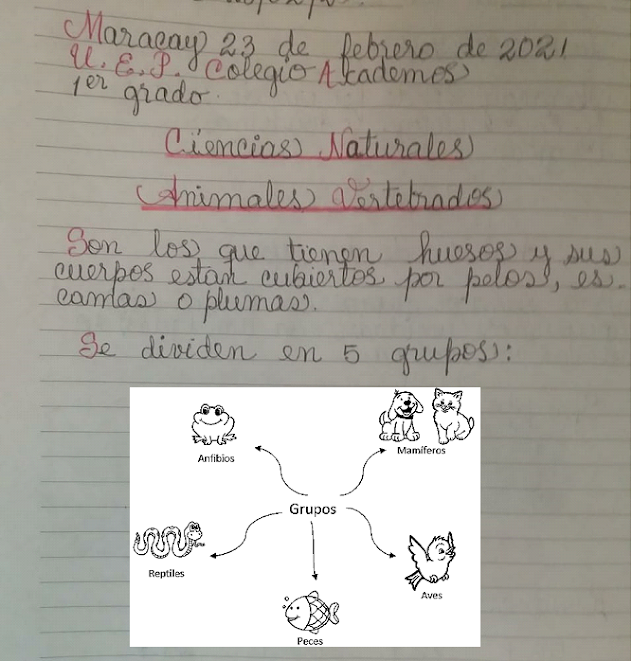 Maracay 23 de febrero de 2021
U.E.P. Colegio Akademos
1er grado.
Ciencias Naturales
Animales Vertebrados
Son los que tienen huesos y sus
cuerpos estan cubiertos por pelos, es-
camas o plumas.
Se dividen en 5 grupos:
Anfibios
Mamíferos
Grupos
Reptiles
Aves
Peces